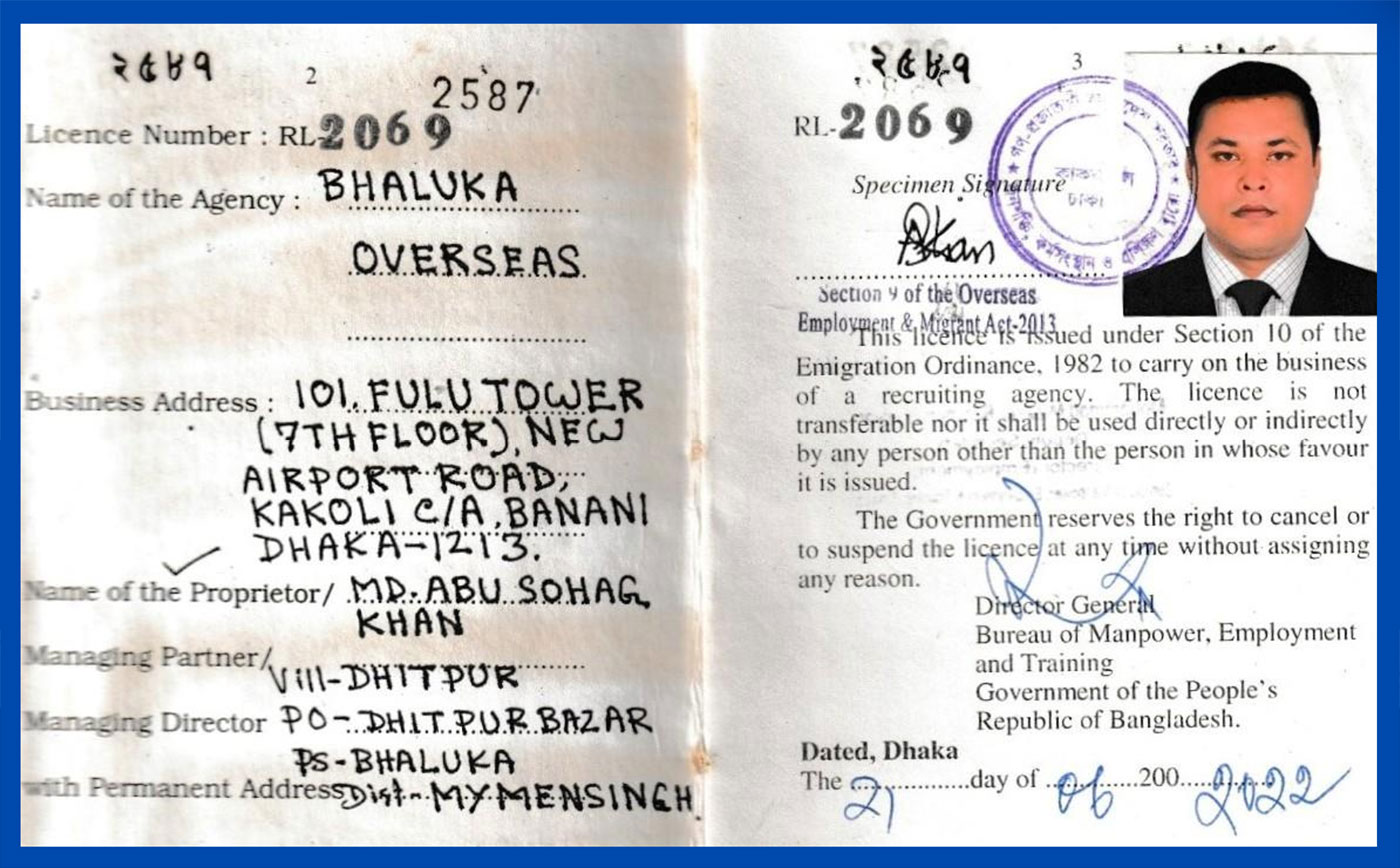 ২৫৮৭
2
2587
Licence Number : RL-2069
Name of the Agency : BHALUKA
OVERSEAS
Business Address : 101, FULU TOWER
(7TH FLOOR), NEW
AIRPORT ROAD,
KAKOLI C/A, BANANI
DHAKA-1213.
Name of the Proprietor/ MD. ABU SOHAG
KHAN
Managing Partner/
Vill-DHITPUR
Managing Director PO-DHITPUR BAZAR
PS-BHALUKA
with Permanent Address Dist-MYMENSINGH
২৫৮৭
3
RL-2069
Specimen Signature
Section 9 of the Overseas
Employment & Migrant Act-2013
This licence is issued under Section 10 of the
Emigration Ordinance, 1982 to carry on the business
of a recruiting agency. The licence is not
transferable nor it shall be used directly or indirectly
by any person other than the person in whose favour
it is issued.
The Government reserves the right to cancel or
to suspend the licence at any time without assigning
any reason.
Director General
Bureau of Manpower, Employment
and Training
Government of the People's
Republic of Bangladesh.
Dated, Dhaka
The 21 day of 06 200 2022
ঢাকা